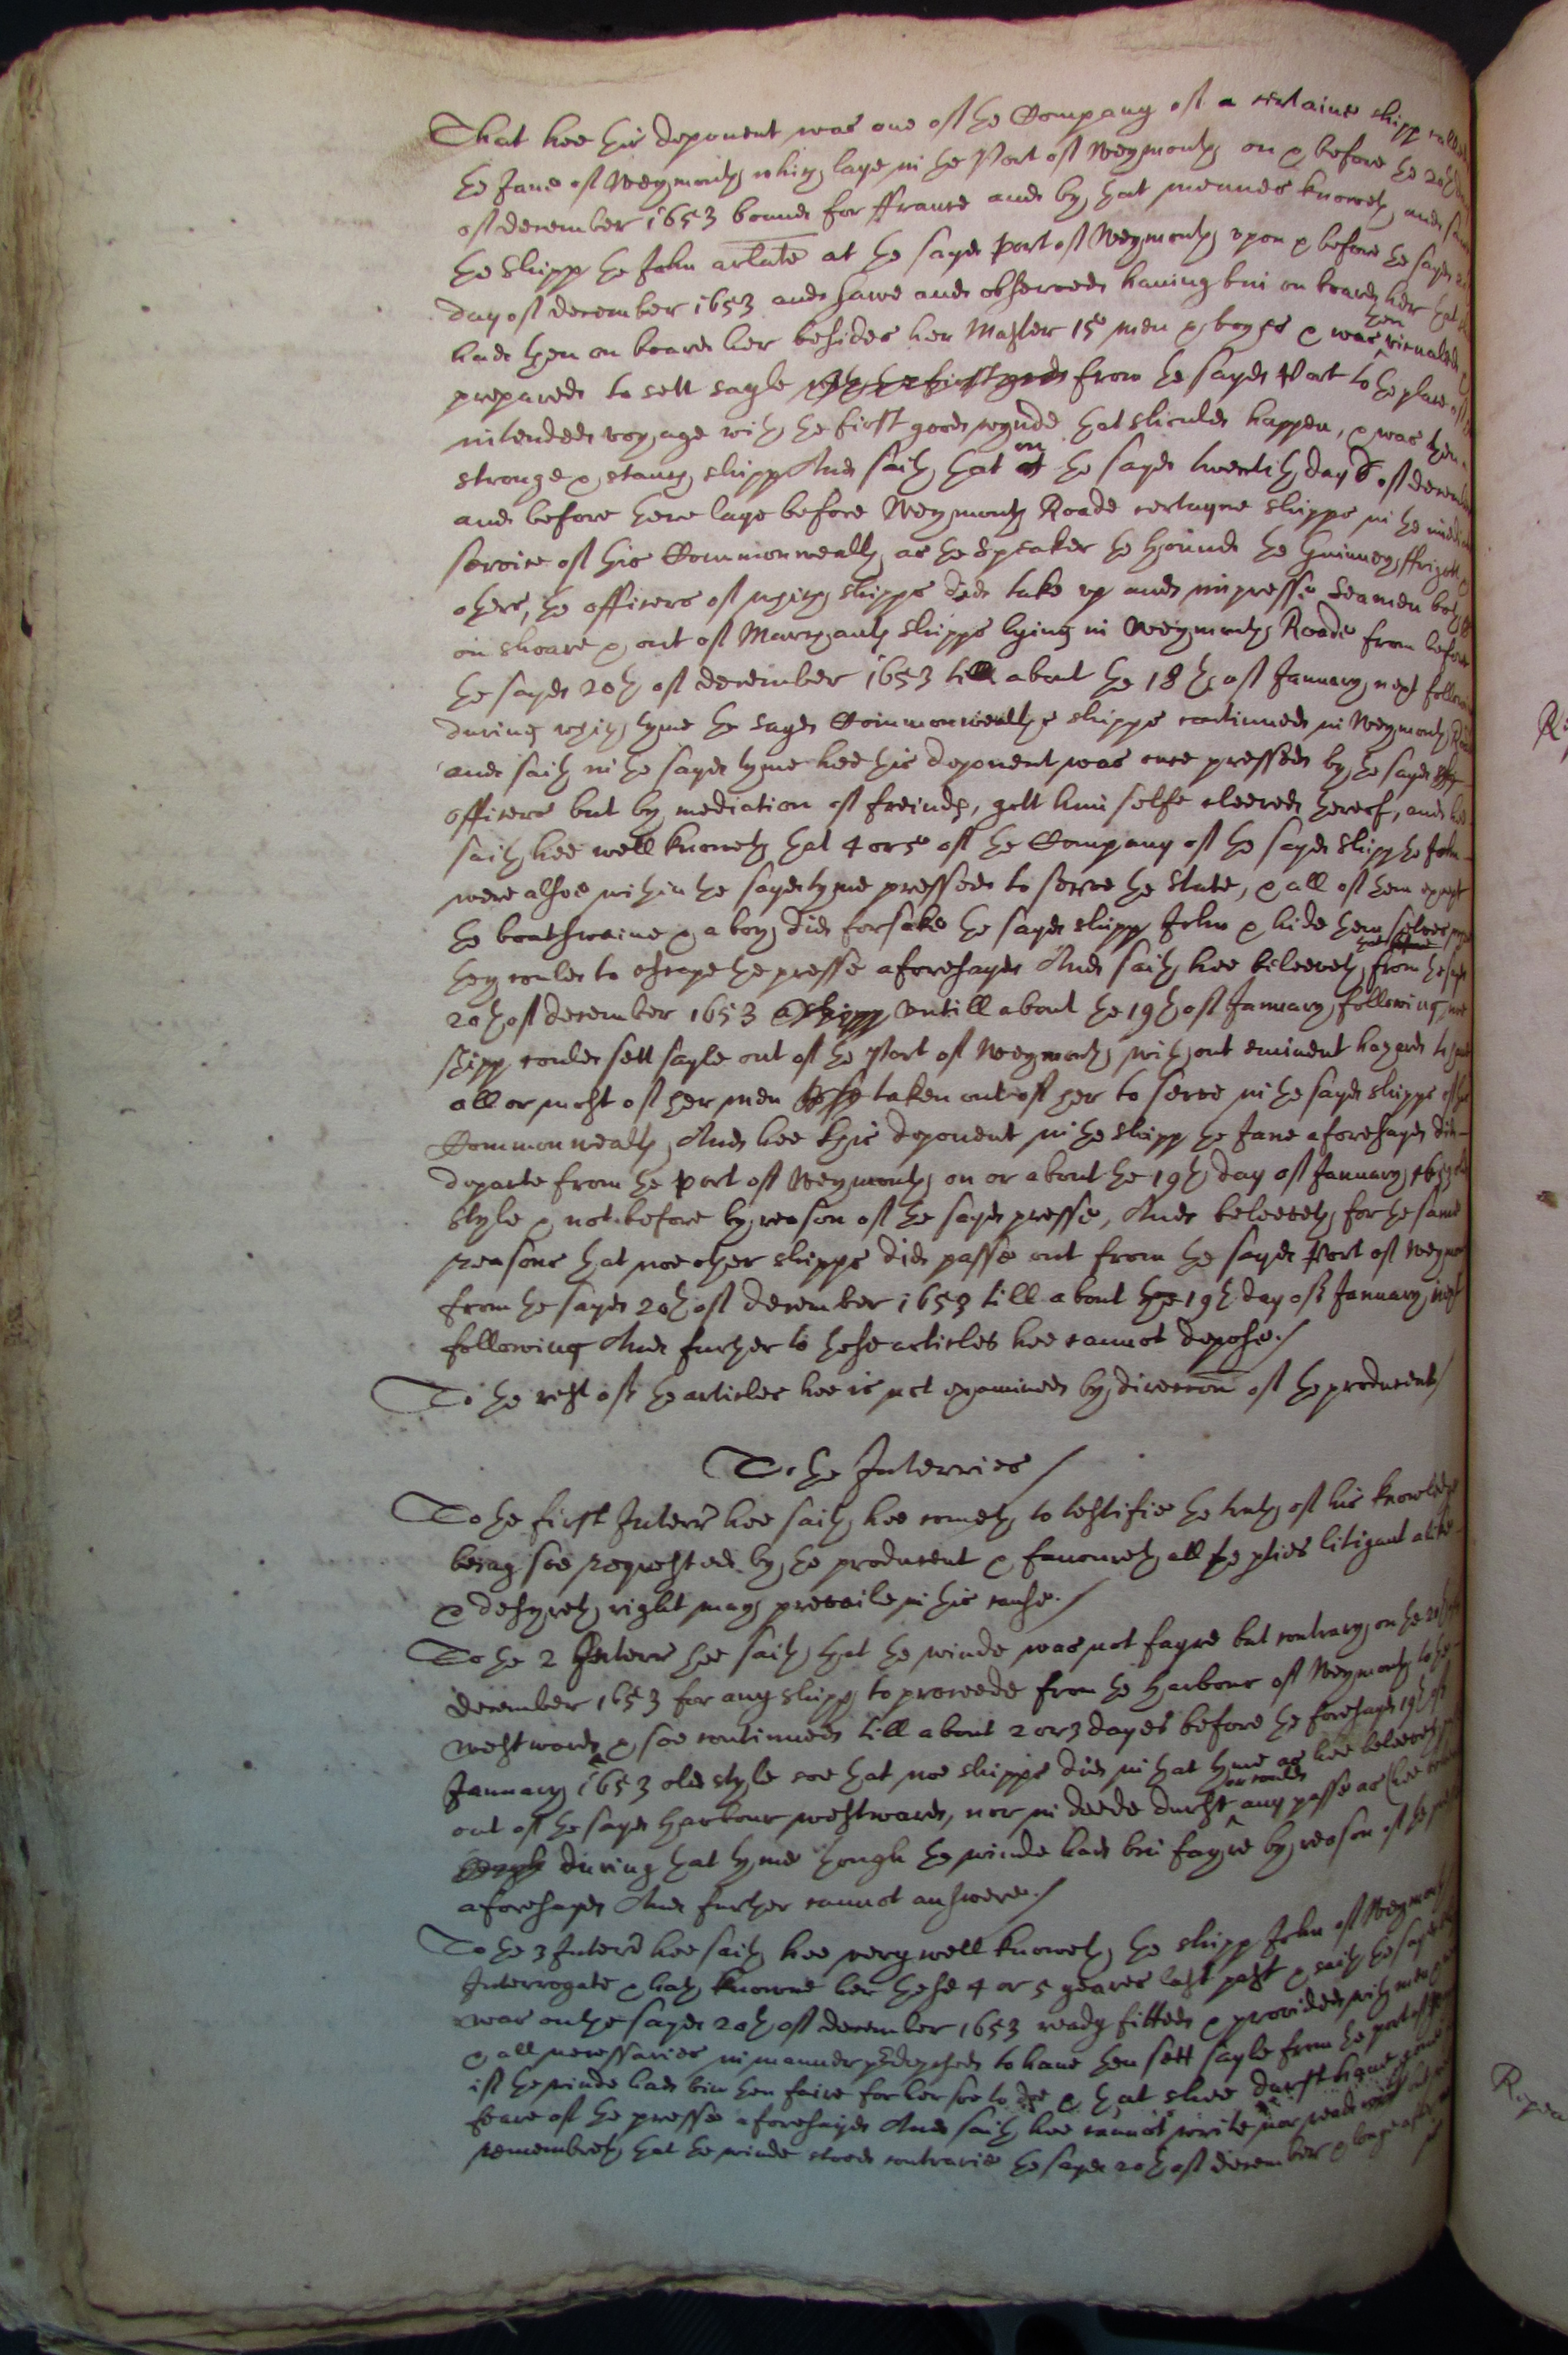 That hee this deponent was one of the Company of a certaine shipp called
the Jane of Weymouth, which laye in the Port of Weymouth on & before the 20th day
of december 1653 bound for ffrance and by that meanes knoweth, and sawe
the shipp the John arlate at the sayd Port of Weymouth upon & before the sayd 20
day of december 1653 and sawe and observed having bin on board her that
had then on board her besides her Master 15 men & boyes & was then victualed
prepared to sett sayle from the sayd Port to the place of
intended voyage with the first good wynde that should happen, & was then
stronge & stanch shipp And saith that on the sayd twentith day of december
and before there laye before Weymouth Roade certayne shipps in the
service of this Commonwealth, as the Speaker the Hound the Guinney ffrigott &
others, the officers of which shipps did take up and impresse Seamen both
on shoare & out of Marchants shipps lying in Weymouth Roade from before
the sayd 20th of december 1653 till about the 18th of January next following
during which tyme the sayd Commonwealths shipps continued in Weymouth Road
and saith in the sayd tyme hee this deponent was once pressed by the sayd
officers but by mediation of freinds, gott him selfe cleered thereof, and hee
saith hee well knoweth that 4 or 5 of the Company of the sayd shipp the John
were alsoe within the sayd tyme pressed to serve the State, & all of them except
the boatswaine & a boy, did forsake the sayd shipp John & hide them selves
they could to escape the presse aforesayd And saith hee beleeveth that from the sayd
20th of december 1653 untill about the 19th of January following noe
shipp could sett sayle out of the Port of Weymouth without eminent hazard to have
all or most of her men taken out of her to serve in the sayd shipps of this
Commonwealth, And hee this deponent in the shipp the Jane aforesayd did
departe from the Port of Weymouth on or about the 19th day of January 1653 old
style & not before by reason of the sayd presse, And beleeveth for the same
reasons that noe other shipps did passe out from the sayd Port of Weymouth
from the sayd 20th of december 1653 till about the 19th day of January next
following And further to these articles hee cannot depose./
To the rest of the articles hee is not examined by direccon of the producent/
To the Interries/
To the first Interr hee saith hee cometh to testifie the truth of his knowledge
being soe requested by the producent & favoureth all the pties litigant alike
& desyreth right may prevaile in this cause./
To the 2 Interr hee saith that the winde was not fayre but contrary on the 20th of
december 1653 for any shipp to proceede from the Harbour of Weymouth to the
westward & soe continued till about 2 or 3 dayes before the foresayd 19th of
January 1653 old style soe that noe shipps did in that tyme as hee beleeveth
out of the sayd Harbour westward, nor in deede durst or could any passe as (hee
during that tyme though the winde had bin fayre by reason of the presse
aforesayd And further cannot answere./
To the 3 Interr hee saith hee very well knoweth the shipp John of Weymouth
Interrogate & hath knowne her these 4 or 5 yeares last past & saith the sayd
was on the sayd 20th of december 1653 ready fitted & provided with men
& all necessaries in manner predeposed to have then sett sayle from the port of
if the winde had bin then faire for her soe to doe & that shee durst have gone
feare of the presse aforesayd And saith hee cannot write nor reade
remembreth that the winde stood contrarie the sayd 20th of december & longe after